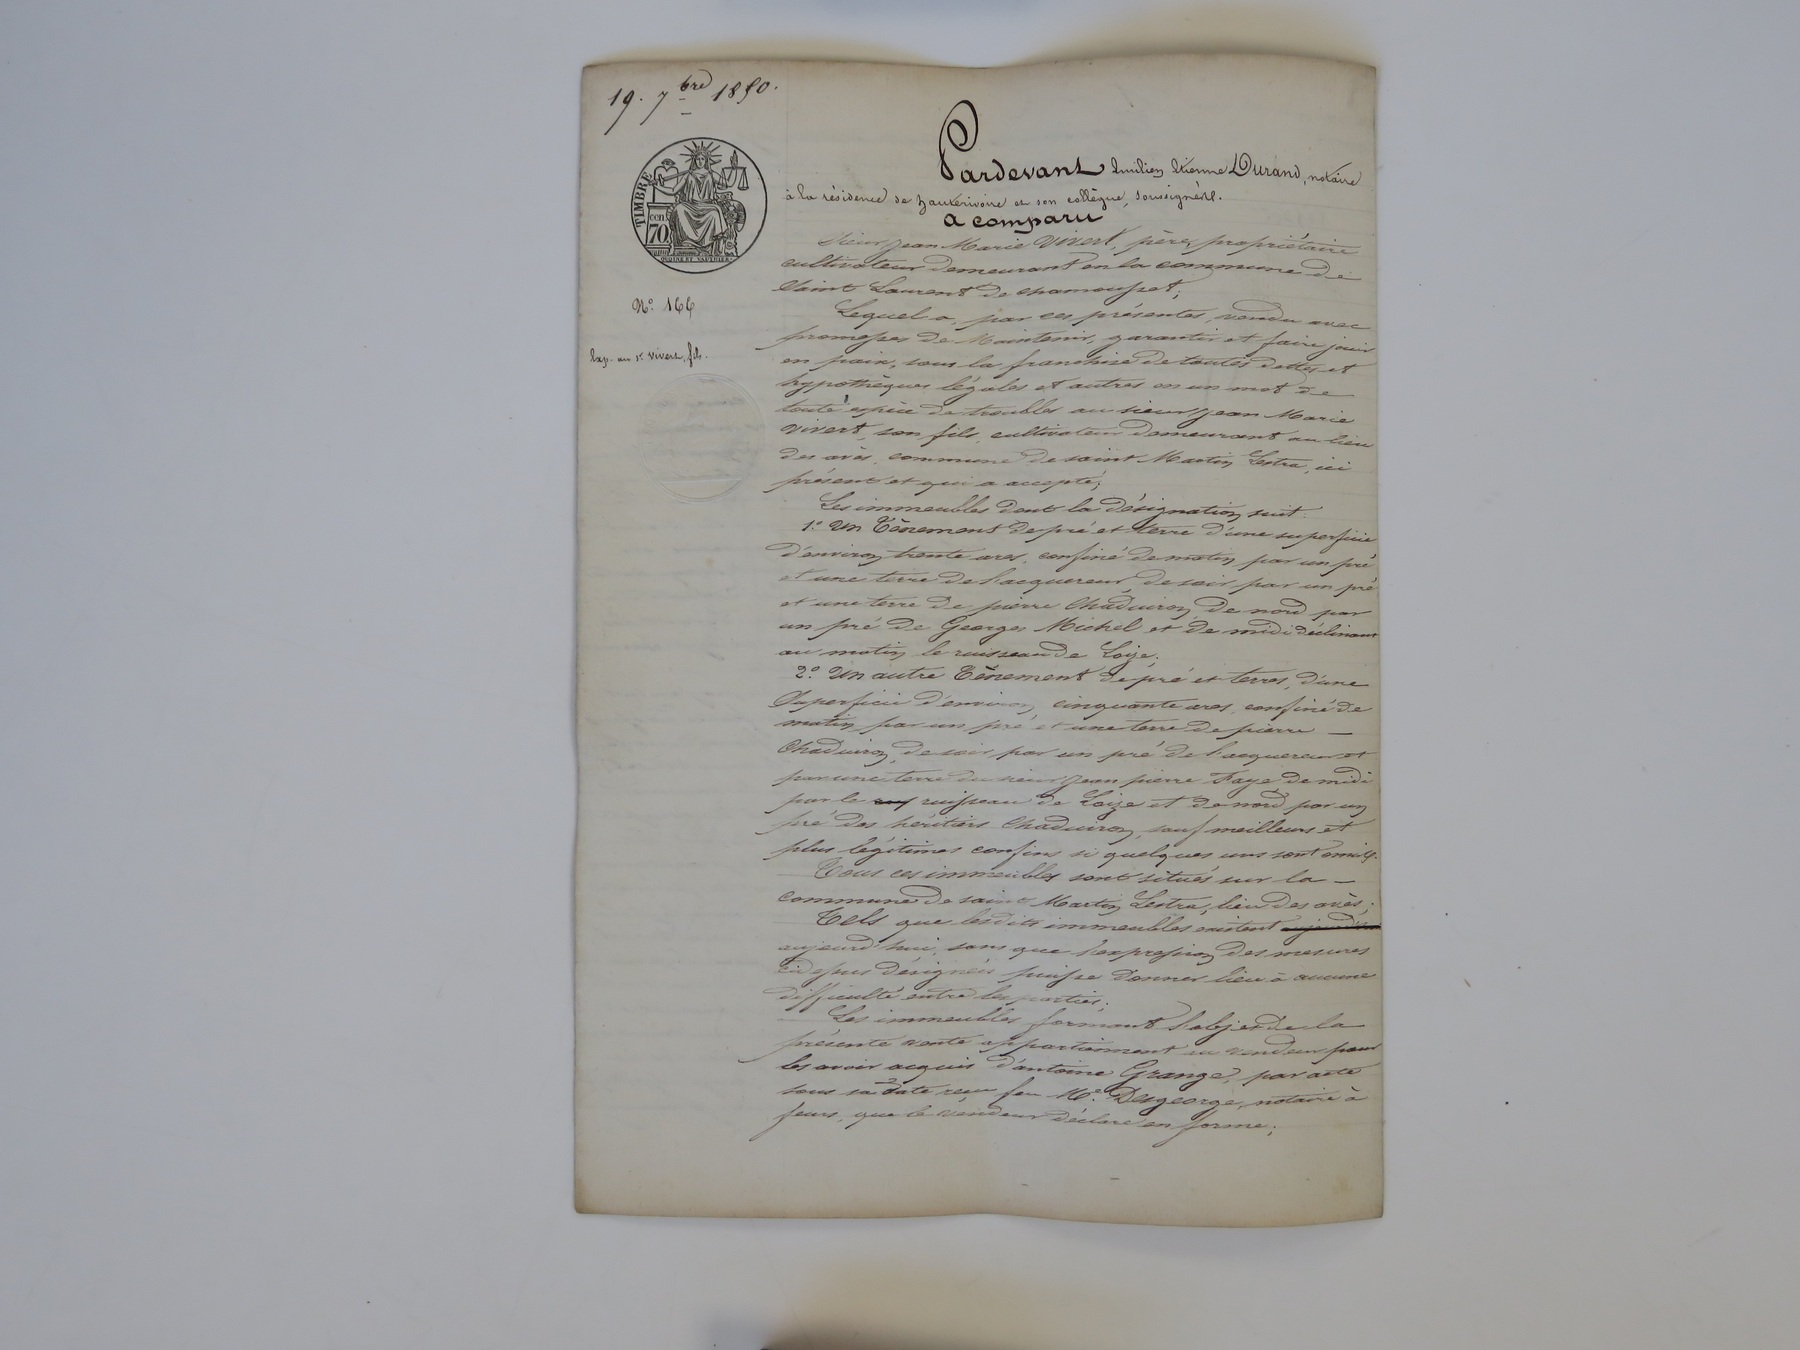 19. 7bre 1850.
TIMBRE
cen
70
N.° 166
Exp. au sr. Vivert, fils.
Pardevant Emilien Etienne Durand, notaire
à la résidence de hauterivoire et son collègue, soussignés.
a comparu
Sieur Jean Marie Vivert, père, propriétaire
cultivateur demeurant en la commune de
Saint Laurent de chamousset;
Lequel a, par ces présentes, vendu avec
promesses de Maintenir, garantir et faire jouir
en paix, sous la franchise de toutes dettes et
hypothèques légales et autres en un mot de
toute espèce de troubles au sieur Jean Marie
Vivert, son fils, cultivateur demeurant au lieu
des avès, commune de saint Martin Lestra, ici
présent et qui a accepté;
Les immeubles dont la désignation suit.
1.° Un Tènement de pré et terre d'une superficie
d'environ trente ares, confiné de matin par un pré
et une terre de l'acquereur de soir par un pré
et une terre de pierre Chaduiron de nord par
un pré de Georges Michel et de midi déclinant
au matin le ruisseau de Loize.
2.° Un autre Tènement de pré et terres, d'une
Superficie d'environ cinquante ares, confiné de
matin par un pré et une terre de pierre —
Chaduiron, de soir par un pré de l'acquereur et
par une terre du sieur Jean pierre Faye de midi
par le ruisseau de Loize et de nord par un
pré des héritiers Chaduiron, sauf meilleurs et
plus légitimes confins si quelques uns sont omis.
Tous ces immeubles sont situés sur la —
commune de saint Martin Lestra, lieu des avès;
Tels que lesdits immeubles existent
aujourd'hui, sans que l'expression des mesures
cidessus désignées puisse donner lieu à aucune
difficulté entre les parties;
Les immeubles formant l'objet de la
présente vente appartiennent au vendeur pour
les avoir acquis d'antoine Grange, par acte
sous sa date reçu feu Me. Desgeorge, notaire à
feurs, que le vendeur déclare en forme;